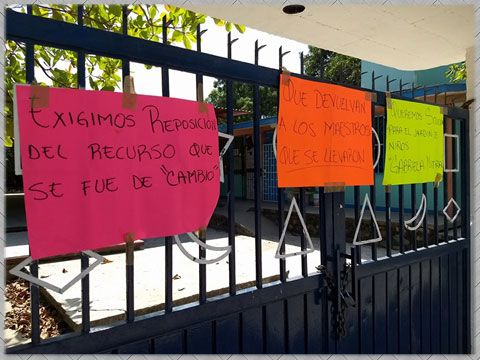 EXIGIMOS REPOSICION
DEL RECURSO QUE
SE FUE DE "CAMBIO"
QUE DEVUELVAN
A LOS MAESTROS
QUE SE LLEVARON
QUEREMOS
PARA EL JARDIN DE
NIÑOS
"GABRIELA MISTRAL